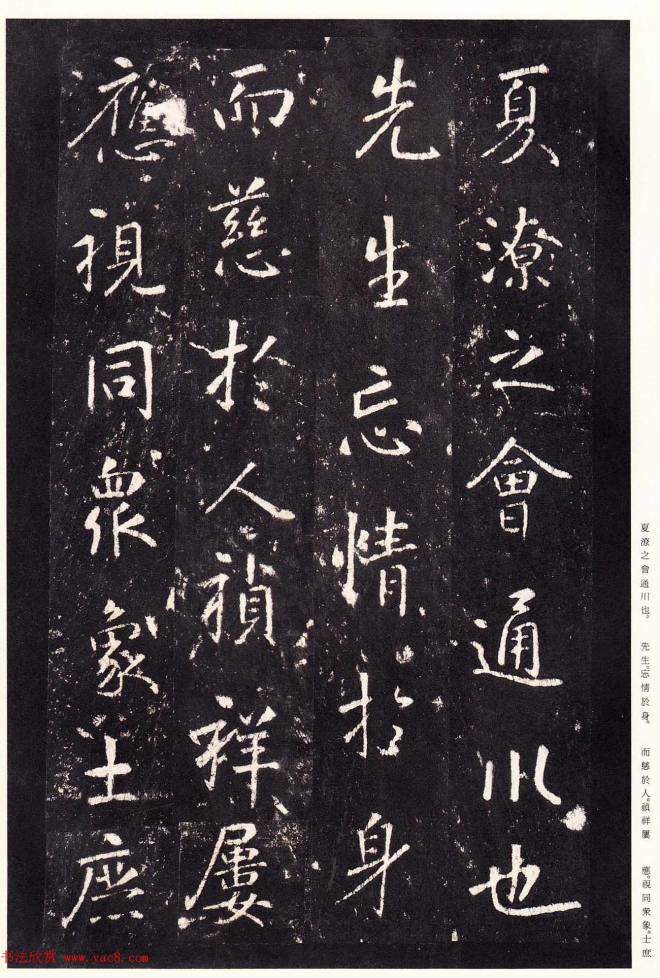 夏潦之會通川也
先生忘情於身
而慈於人禎祥屢
應視同衆象士庶
夏潦之會通川也。 先生。忘情於身。 而慈於人。禎祥屢 應。視同衆象。士庶
书法欣赏 www.yac8.com